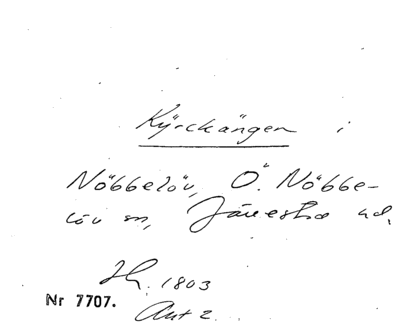 Kÿrckängen i
Nöbbelöv, Ö. Nöbbe-
löv sn, Järrestad hd.
Sk. 1803
Nr 7707.
Akt 2